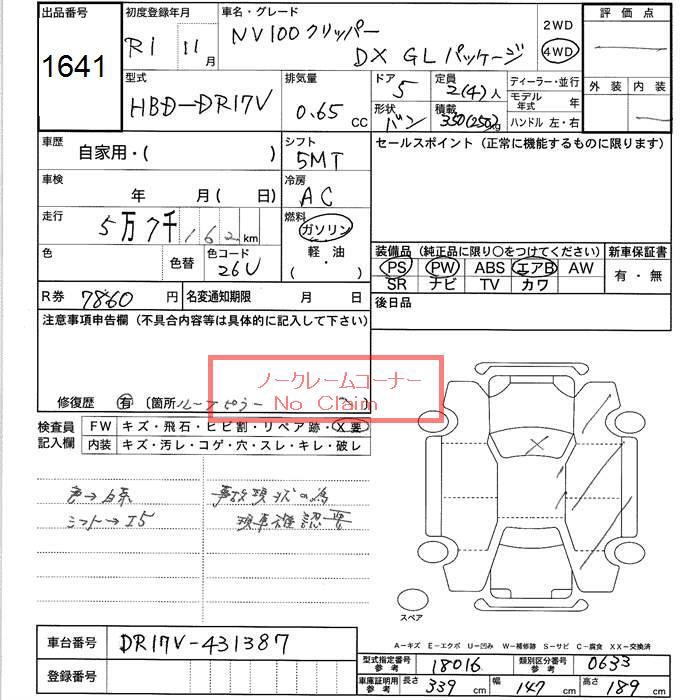 出品番号 1641
初度登録年月 R1 11月
車名・グレード NV100クリッパー DX GLパッケージ
2WD
4WD
評価点
外装 内装
型式 HBD-DR17V
排気量 0.65 CC
ドア 5
定員 2(4)人
形状 バン
積載 350(250)kg
ディーラー・並行
モデル年式 年
ハンドル 左・右
車歴 自家用・( )
シフト 5MT
セールスポイント(正常に機能するものに限ります)
車検 年 月( 日)
冷房 AC
走行 5万7千162km
燃料 ガソリン
軽・油
( ・ )
色 色替 色コード 26U
装備品(純正品に限り〇をつけてください)
PS PW ABS エアB AW
SR ナビ TV カワ
新車保証書
有・無
R券 7860円
名変通知期限 月 日
後日品
注意事項申告欄(不具合内容等は具体的に記入して下さい)
ノークレームコーナー
No Claim
修復歴 有 〔箇所 ルーフピラー 〕
検査員記入欄
FW キズ・飛石・ヒビ割・リペア跡・X要
内装 キズ・汚レ・コゲ・穴・スレ・キレ・破レ
色→白系
シフト→I5
事故現状の為
現車確認要
スペア
A−キズ E−エクボ U−凹み W−補修跡 S−サビ C−腐食 XX−交換済
車台番号 DR17V-431387
登録番号
型式指定番号 参考 18016
類別区分番号 参考 0633
車庫証明用 参考 長さ 339 cm 幅 147 cm 高さ 189 cm